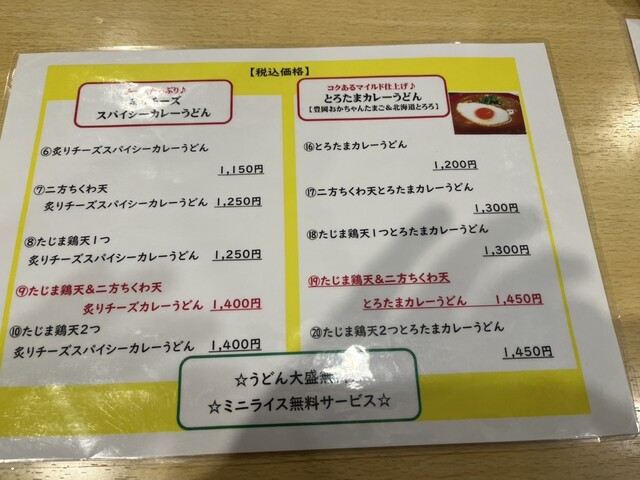 【税込価格】
ーズ
スパイシーカレーうどん
⑥炙りチーズスパイシーカレーうどん
1,150円
⑦二方ちくわ天
炙りチーズスパイシーカレーうどん 1,250円
⑧たじま鶏天1つ
炙りチーズスパイシーカレーうどん 1,250円
⑨たじま鶏天&二方ちくわ天
炙りチーズカレーうどん 1,400円
⑩たじま鶏天2つ
炙りチーズスパイシーカレーうどん 1,400円
コクあるマイルド仕上げ♪
とろたまカレーうどん
【豊岡おかちゃんたまご&北海道とろろ】
⑯とろたまカレーうどん
1,200円
⑰二方ちくわ天とろたまカレーうどん
1,300円
⑱たじま鶏天1つとろたまカレーうどん
1,300円
⑲たじま鶏天&二方ちくわ天
とろたまカレーうどん 1,450円
⑳たじま鶏天2つとろたまカレーうどん
1,450円
☆うどん大盛無
☆ミニライス無料サービス☆